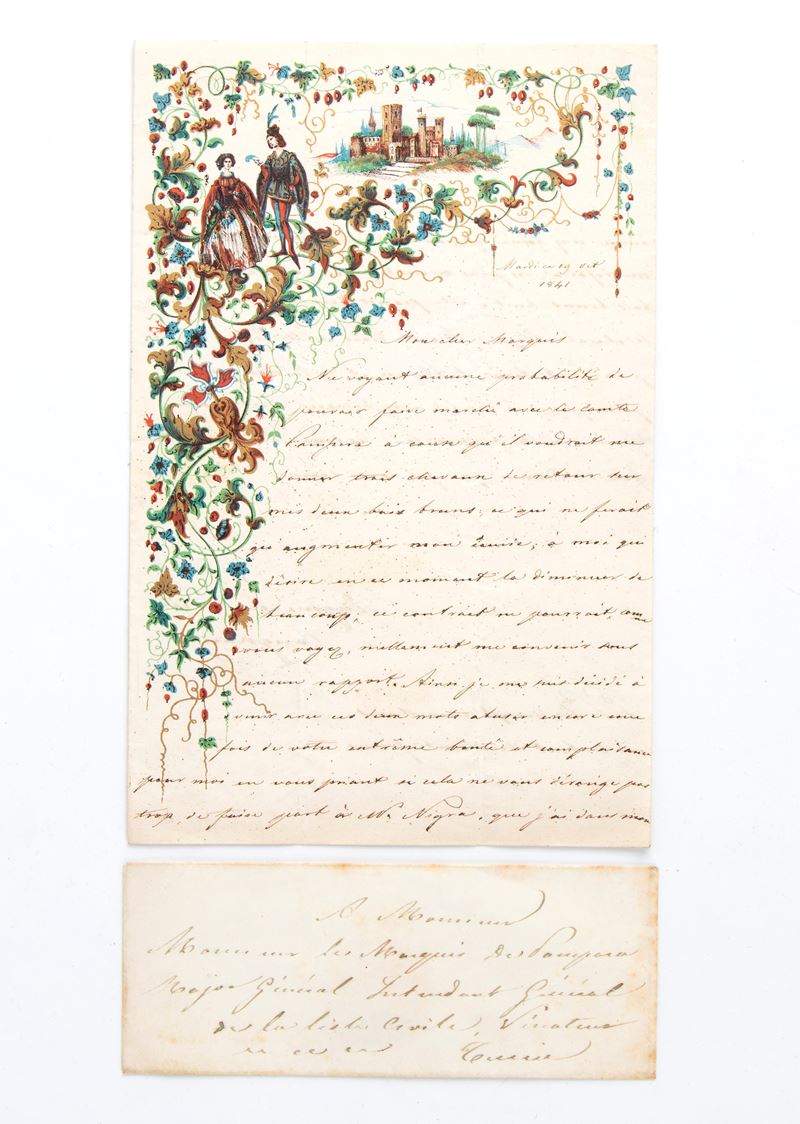 Mardi ce 19 Oct
1841
Mon cher Marquis
Ne voyant aucune probabilité de
pouvoir faire marché avec le Comte
à cause qu'il voudrait me
donner trois chevaux de retour sur
mes deux bais bruns; ce qui ne ferait
qu'augmenter mon écurie; à moi qui
désire en ce moment la diminuer de
beaucoup; ce contrait ne pourrait, comme
vous voyez, nullement me convenir sous
aucun rapport. Ainsi je me suis décidé à
venir avec ces deux mots abuser encore une
fois de votre extrême bonté et complaisance
pour moi en vous priant si cela ne vous dérange pas
trop, de faire part à Mr Nigra, que j'ai dans mon
A Monsieur
Monsieur le Marquis De
Major Général Intendant Général
de la liste Civile, Sénateur